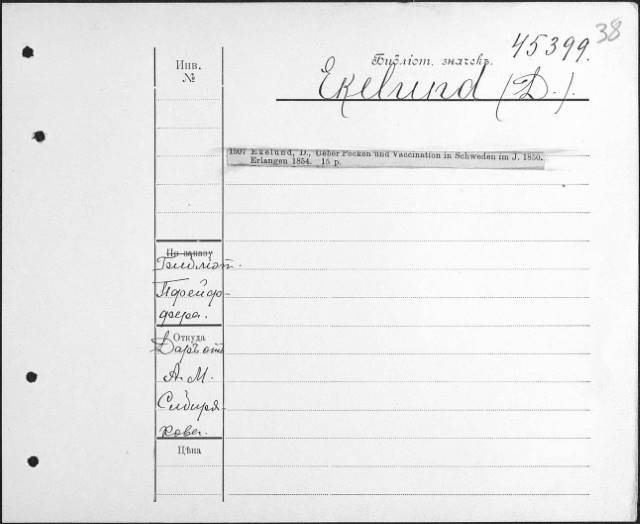 38
45399.
Инв.
№
Библіот. значекъ.
Ekelund (D.).
1507 Ekelund, D., Ueber Pocken und Vaccination in Schweden im J. 1850.
Erlangen 1854. 15 p.
По заказу
Библіот.
Пфейф-
фера.
Откуда
Даръ отъ
А. М.
Сибиря-
кова.
Цѣна